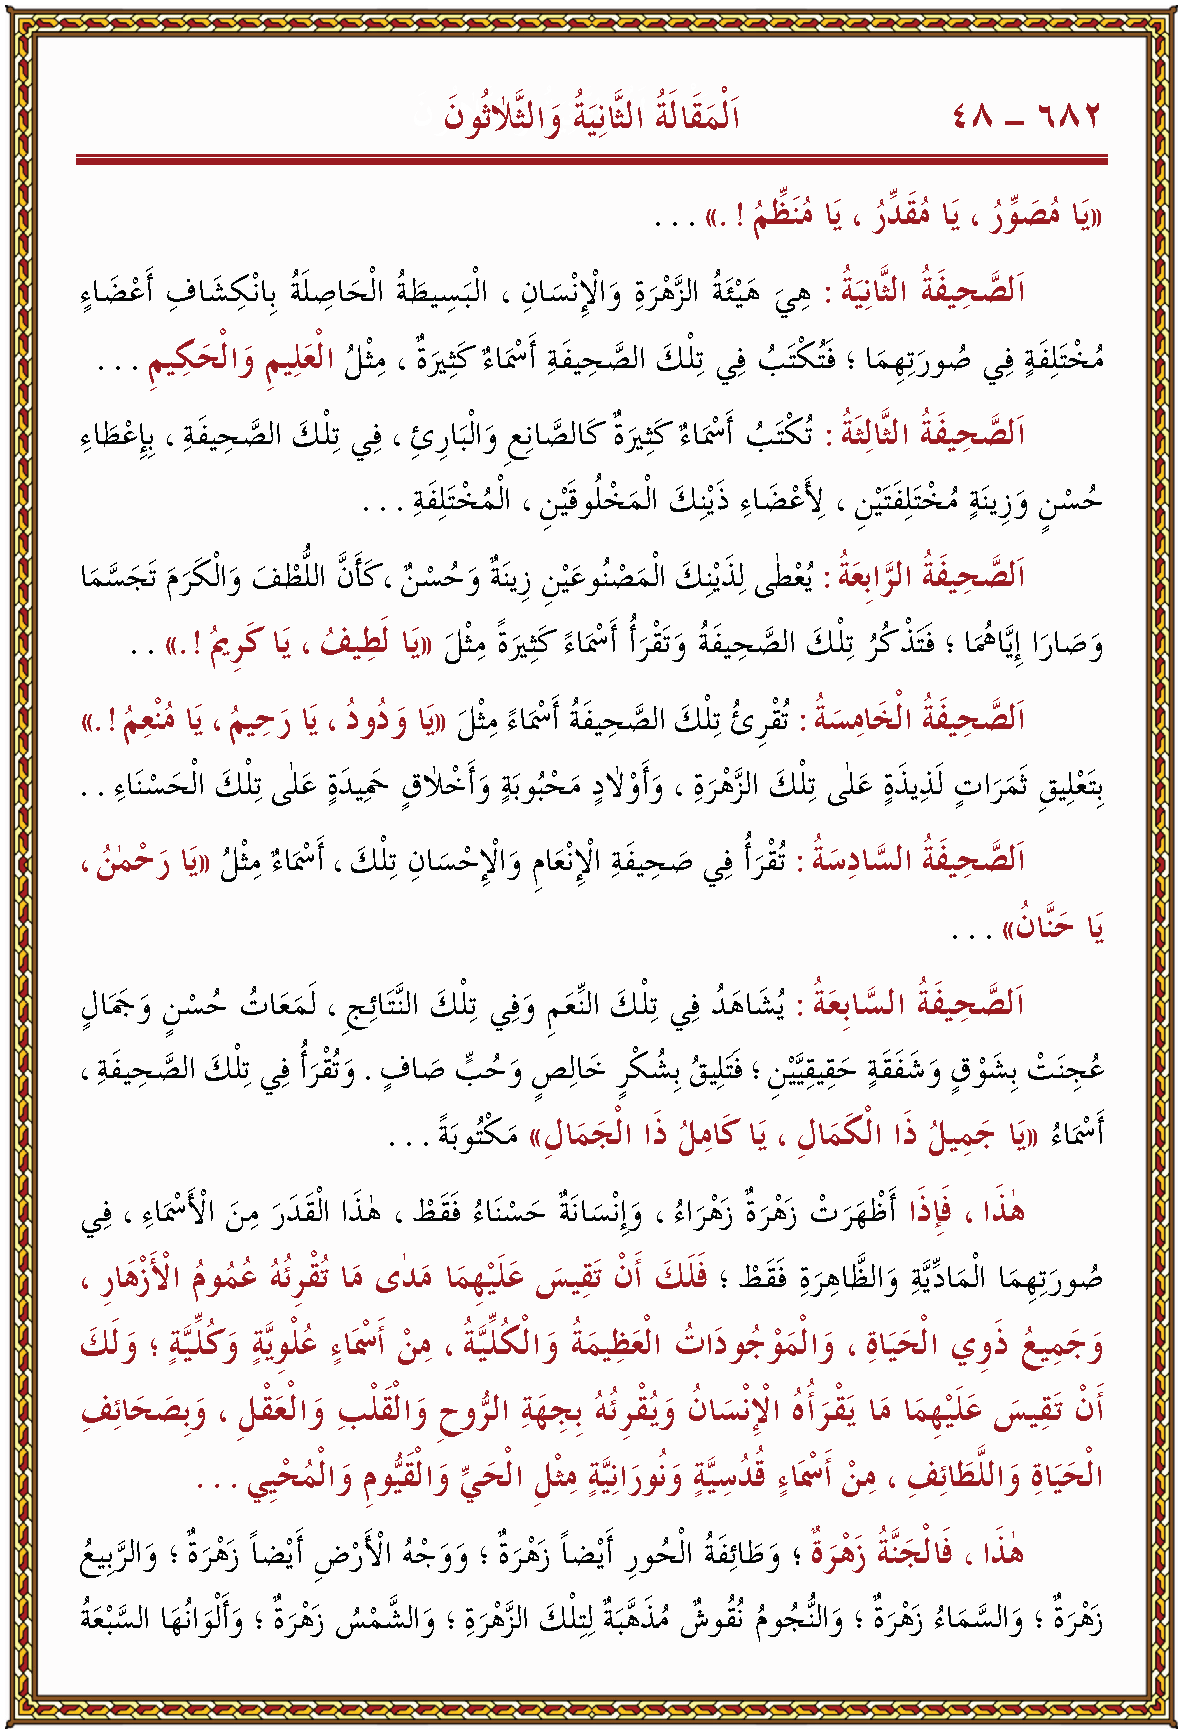 ٦٨٢ ــ ٤٨ اَلْمَقَالَةُ الثَّانِيَةُ وَالثَّلَاثُونَ
«يَا مُصَوِّرُ ، يَا مُقَدِّرُ ، يَا مُنَظِّمُ ! .» . . .
اَلصَّحِيفَةُ الثَّانِيَةُ : هِيَ هَيْئَةُ الزَّهْرَةِ وَالْإِنْسَانِ ، الْبَسِيطَةُ الْحَاصِلَةُ بِانْكِشَافِ أَعْضَاءٍ
مُخْتَلِفَةٍ فِي صُورَتِهِمَا ؛ فَتُكْتَبُ فِي تِلْكَ الصَّحِيفَةِ أَسْمَاءٌ كَثِيرَةٌ ، مِثْلُ الْعَلِيمِ وَالْحَكِيمِ . . .
اَلصَّحِيفَةُ الثَّالِثَةُ : تُكْتَبُ أَسْمَاءٌ كَثِيرَةٌ كَالصَّانِعِ وَالْبَارِئِ ، فِي تِلْكَ الصَّحِيفَةِ ، بِإِعْطَاءِ
حُسْنٍ وَزِينَةٍ مُخْتَلِفَتَيْنِ ، لِأَعْضَاءِ ذَيْنِكَ الْمَخْلُوقَيْنِ ، الْمُخْتَلِفَةِ . . .
اَلصَّحِيفَةُ الرَّابِعَةُ : يُعْطٰى لِذَيْنِكَ الْمَصْنُوعَيْنِ زِينَةٌ وَحُسْنٌ ، كَأَنَّ اللُّطْفَ وَالْكَرَمَ تَجَسَّمَا
وَصَارَا إِيَّاهُمَا ؛ فَتَذْكُرُ تِلْكَ الصَّحِيفَةُ وَتَقْرَأُ أَسْمَاءً كَثِيرَةً مِثْلَ «يَا لَطِيفُ ، يَا كَرِيمُ ! .» . .
اَلصَّحِيفَةُ الْخَامِسَةُ : تُقْرِئُ تِلْكَ الصَّحِيفَةُ أَسْمَاءً مِثْلَ «يَا وَدُودُ ، يَا رَحِيمُ ، يَا مُنْعِمُ ! .»
بِتَعْلِيقِ ثَمَرَاتٍ لَذِيذَةٍ عَلٰى تِلْكَ الزَّهْرَةِ ، وَأَوْلَادٍ مَحْبُوبَةٍ وَأَخْلَاقٍ حَمِيدَةٍ عَلٰى تِلْكَ الْحَسْنَاءِ . .
اَلصَّحِيفَةُ السَّادِسَةُ : تُقْرَأُ فِي صَحِيفَةِ الْإِنْعَامِ وَالْإِحْسَانِ تِلْكَ ، أَسْمَاءٌ مِثْلُ «يَا رَحْمٰنُ ،
يَا حَنَّانُ» . . .
اَلصَّحِيفَةُ السَّابِعَةُ : يُشَاهَدُ فِي تِلْكَ النِّعَمِ وَفِي تِلْكَ النَّتَائِجِ ، لَمَعَاتُ حُسْنٍ وَجَمَالٍ
عُجِنَتْ بِشَوْقٍ وَشَفَقَةٍ حَقِيقِيَّيْنِ ؛ فَتَلِيقُ بِشُكْرٍ خَالِصٍ وَحُبٍّ صَافٍ . وَتُقْرَأُ فِي تِلْكَ الصَّحِيفَةِ ،
أَسْمَاءُ «يَا جَمِيلُ ذَا الْكَمَالِ ، يَا كَامِلُ ذَا الْجَمَالِ» مَكْتُوبَةً . . .
هٰذَا ، فَإِذَا أَظْهَرَتْ زَهْرَةٌ زَهْرَاءُ ، وَإِنْسَانَةٌ حَسْنَاءُ فَقَطْ ، هٰذَا الْقَدَرَ مِنَ الْأَسْمَاءِ ، فِي
صُورَتِهِمَا الْمَادِّيَّةِ وَالظَّاهِرَةِ فَقَطْ ؛ فَلَكَ أَنْ تَقِيسَ عَلَيْهِمَا مَدٰى مَا تُقْرِئُهُ عُمُومُ الْأَزْهَارِ ،
وَجَمِيعُ ذَوِي الْحَيَاةِ ، وَالْمَوْجُودَاتُ الْعَظِيمَةُ وَالْكُلِّيَّةُ ، مِنْ أَسْمَاءٍ عُلْوِيَّةٍ وَكُلِّيَّةٍ ؛ وَلَكَ
أَنْ تَقِيسَ عَلَيْهِمَا مَا يَقْرَأُهُ الْإِنْسَانُ وَيُقْرِئُهُ بِجِهَةِ الرُّوحِ وَالْقَلْبِ وَالْعَقْلِ ، وَبِصَحَائِفِ
الْحَيَاةِ وَاللَّطَائِفِ ، مِنْ أَسْمَاءٍ قُدُسِيَّةٍ وَنُورَانِيَّةٍ مِثْلِ الْحَيِّ وَالْقَيُّومِ وَالْمُحْيِي . . .
هٰذَا ، فَالْجَنَّةُ زَهْرَةٌ ؛ وَطَائِفَةُ الْحُورِ أَيْضاً زَهْرَةٌ ؛ وَوَجْهُ الْأَرْضِ أَيْضاً زَهْرَةٌ ؛ وَالرَّبِيعُ
زَهْرَةٌ ؛ وَالسَّمَاءُ زَهْرَةٌ ؛ وَالنُّجُومُ نُقُوشٌ مُذَهَّبَةٌ لِتِلْكَ الزَّهْرَةِ ؛ وَالشَّمْسُ زَهْرَةٌ ؛ وَأَلْوَانُهَا السَّبْعَةُ